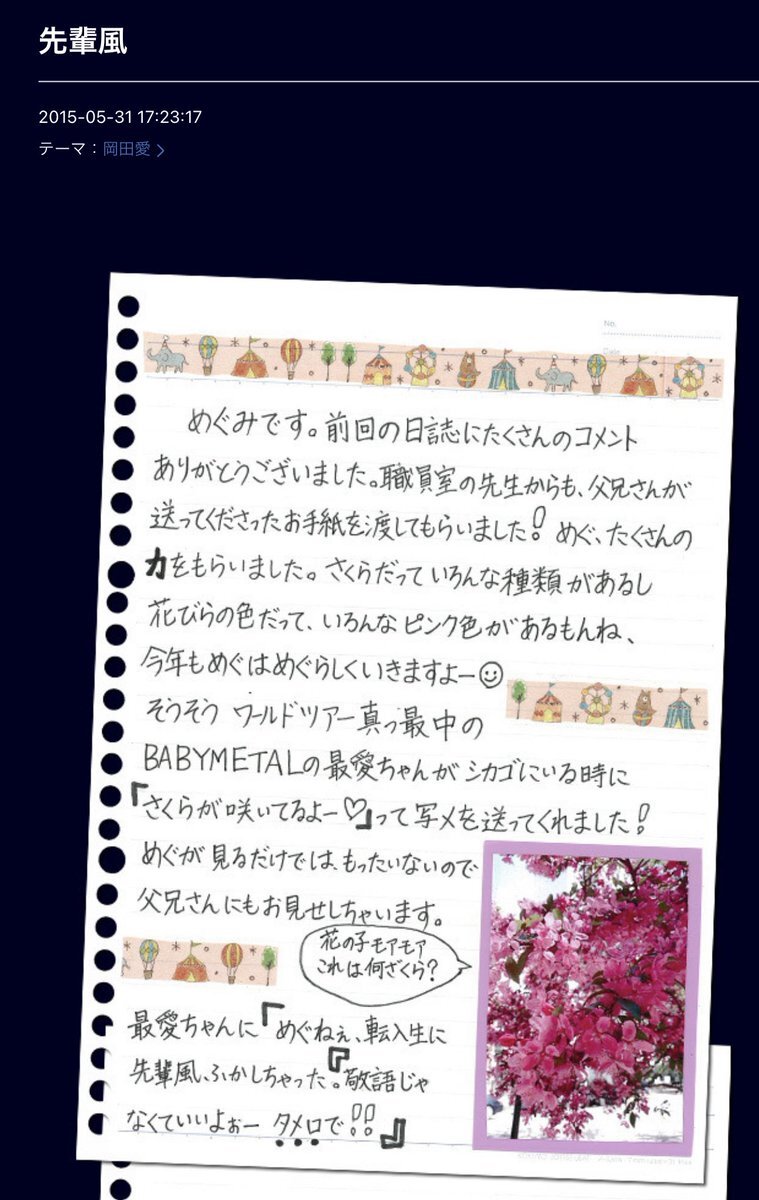 先輩風
2015-05-31 17:23:17
テーマ：岡田愛 >
No.
Date
めぐみです。前回の日誌にたくさんのコメント
ありがとうございました。職員室の先生からも、父兄さんが
送ってくださったお手紙を渡してもらいました! めぐ、たくさんの
力をもらいました。さくらだっていろんな種類があるし
花びらの色だって、いろんなピンク色があるもんね、
今年もめぐはめぐらしくいきますよー☺
そうそう ワールドツアー真っ最中の
BABYMETALの最愛ちゃんがシカゴにいる時に
『さくらが咲いてるよー♡』って写メを送ってくれました!
めぐが見るだけでは、もったいないので
父兄さんにもお見せしちゃいます。
花の子モァモァ
これは何ざくら?
最愛ちゃんに『めぐねぇ、転入生に
先輩風、ふかしちゃった。『敬語じゃ
なくていいよぉー タメロで!!』